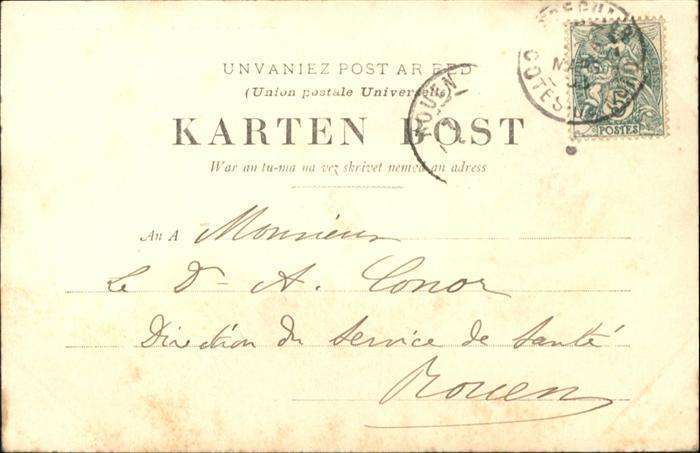 UNVANIEZ POST AR BED
(Union postale Universelle)
KARTEN POST
War an tu-ma na vez skrivet nemed an adress
ROUEN
COTES DU NORD
POSTES
An A Monsieur
Le Dr A. Conor
Direction du Service de Santé
Rouen